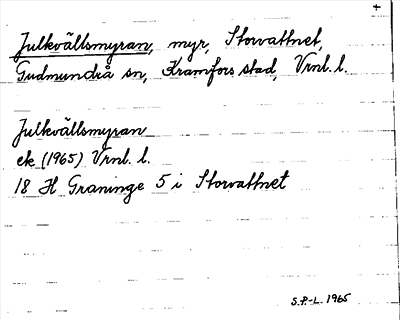 +
Julkvällsmyran, myr, Storvattnet,
Gudmundrå sn, Kramfors stad, Vrnl. l.
Julkvällsmyran
ek (1965) Vrnl. l.
18 H Graninge 5 i Storvattnet
S.P.-L. 1965